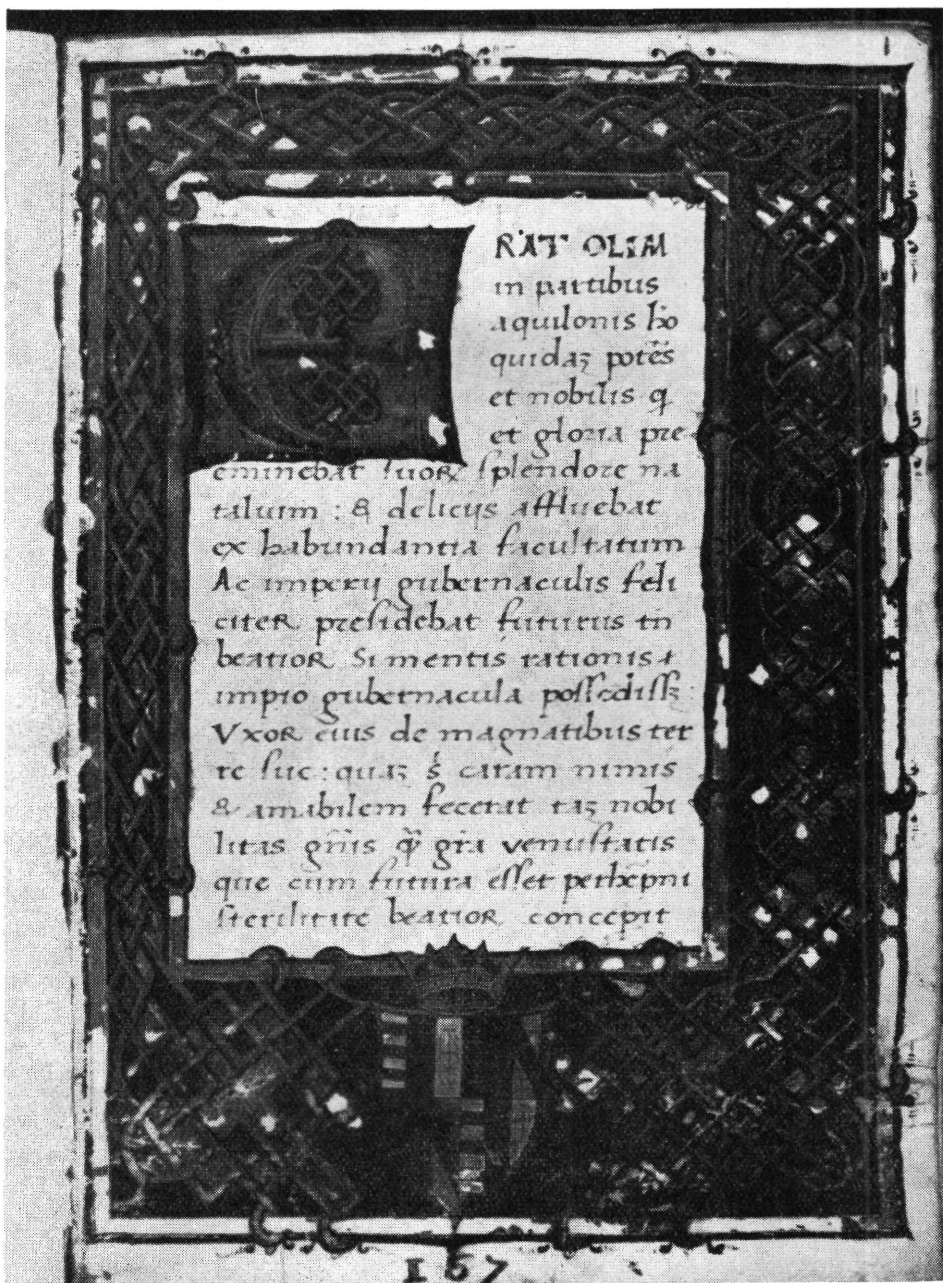 ERAT OLIM
in partibus
aquilonis ho
quidaꝫ potēs
et nobilis q
et gloria pre
eminebat suoꝝ splendore na
talium : & delicijs affluebat
ex habundantia facultatum
Ac imperij gubernaculis feli
citer presidebat futurus tn
beatior Si mentis rationis
impio gubernacula possedissꝫ :
Vxor eius de magnatibus ter
re sue : quaꝫ s̓ caram nimis
& amabilem fecerat taꝫ nobi
litas gn̄is q̄ gr̄a venustatis
que cum futura esset perhēpni
sterilitate beatior concepit
157